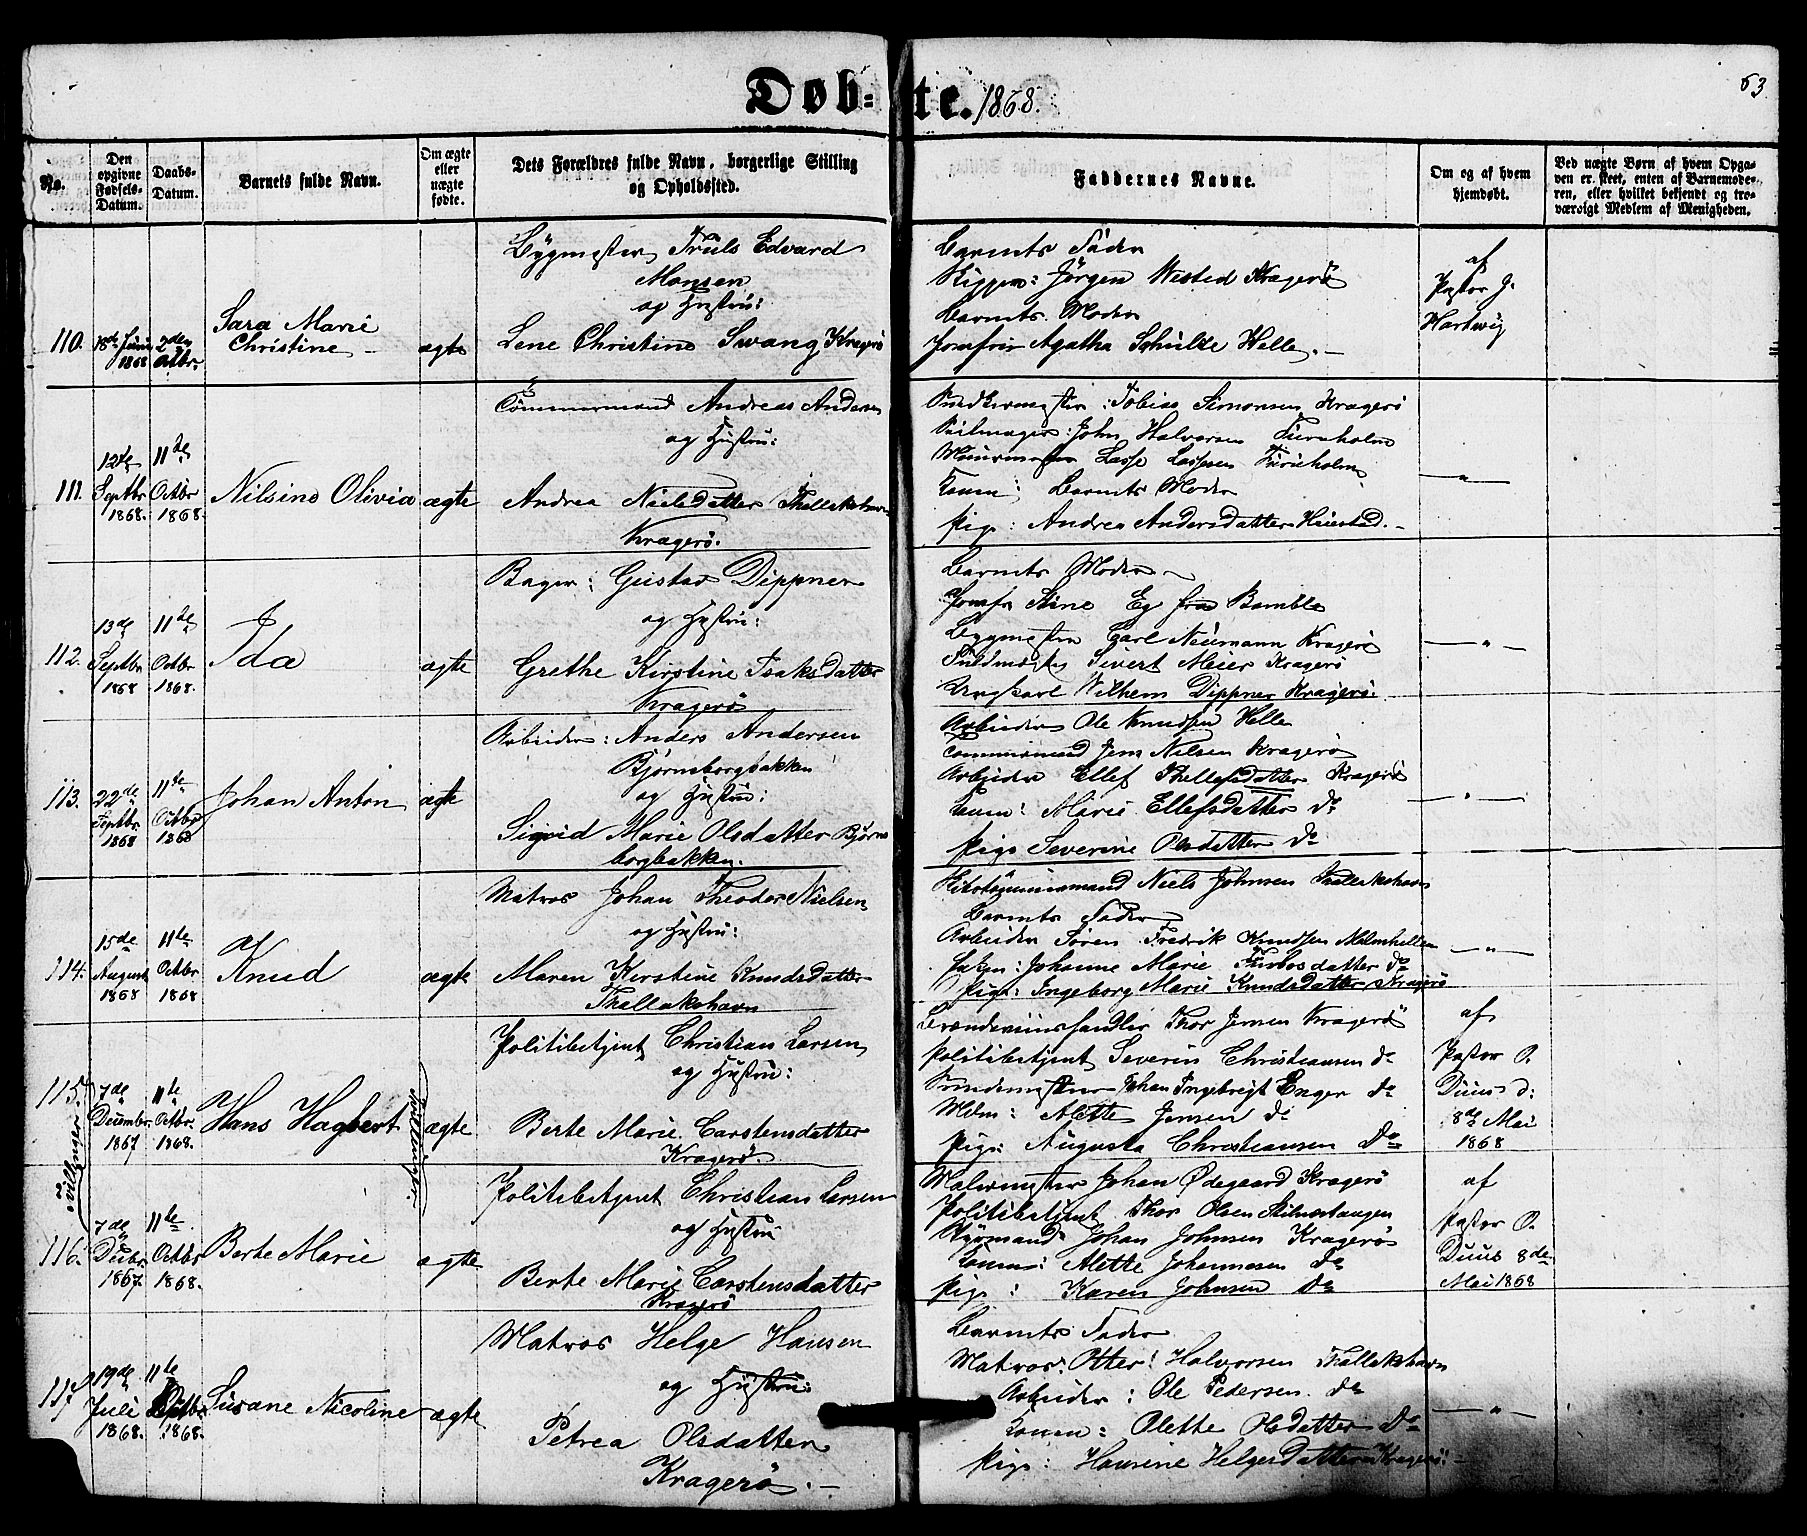 Døbte. 1868.
63
No.
Den opgivne Fødsels-Datum.
Daabs-Datum.
Barnets fulde Navn.
Om ægte eller uægte fødte.
Dets Forældres fulde Navn, borgerlige Stilling og Opholdssted.
Faddernes Navne.
Om og af hvem hjemdøbt.
Ved uægte Børn af hvem Opgaven er skeet, enten af Barnemoderen, eller hvilket bekjendt og troværdigt Medlem af Menigheden.
110.
18de Juni 1868
2den Octbr.
Sara Marie
Christine
ægte
Bygmester Truls Edvard
Monsen
og Hustru:
Lene Christine Svang Kragerö
Barnets Fader
Skipper: Jörgen Wested Kragerö
Barnets Moder
Jomfru Agatha Schulze Helle.
af
Pastor J.
Hartvig
111.
12te Septbr 1868.
11te Octbr 1868.
Nilsine Olivia
ægte
Tömmermand Andreas Andersen
og Hustru:
Andrea Nielsdatter Thallakshavn
Kragerö.
Tobias Simonsen Kragerö
Seilmager: John Halvorsen Furuholm
Lasse Lassesen Furuholm
Konen: Barnets Moder
Pige: Andrea Andersdatter
— " —
112.
13de Septbr 1868
11te Octbr 1868.
Ida
ægte
Bager: Gustav Dippner
og Hustru:
Grethe Kirstine Isaksdatter
Kragerö
Barnets Moder
Jomfr Stine Eg fra Bamble
Bygmester Carl Neumann Kragerö
Sivert Meier Kragerö
Ungkarl Wilhem Dippner Kragerö.
— " —
113.
22de Septbr. 1868
11te Octbr 1868
Johan Anton
ægte
Arbeider: Anders Andersen
Björnsborgbakken
og Hustru:
Sigrid Marie Olsdatter Björns
borgbakken.
Arbeider Ole Knudsen Helle
Tömmermand Jens Nilsen Kragerö
Arbeider Ellef Thellefsdatter Kragerö
Konen: Marie Ellefsdatter do
Pige Severine Olsdatter do
— " —
114.
15de August 1868
11te Octbr 1868
Knud
ægte
Matros Johan Theodor Nielsen
og Hustru:
Maren Kirstine Knudsdatter
Thallakshavn
Niels Johnsen Thallakshavn
Barnets Fader
Arbeider Sören Fredrik Knudsen Malmhellen
Johanne Marie do
Pige: Ingeborg Marie Knudsdatter Kragerö
— " —
115.
7de Decembr. 1867
11te Octbr. 1868.
Hans Hagbert
ægte
tvillinger
Politibetjent Christian Larsen
og Hustru:
Berte Marie Carstensdatter
Kragerö.
Brændeviinshandler Thor Jensen Kragerö
Politibetjent Severin Christiansen do
Johan Ingebrigt Enger do
Mdm: Alette Jensen do
Pige: Augusta Christiansen do
af
Pastor O.
Duus d:
8de Mai
1868
tvillinger.
116.
7de Decbr. 1867.
11te Octbr 1868.
Berte Marie
ægte
Politibetjent Christian Larsen
og Hustru
Berte Marie Carstensdatter
Kragerö
Malermester Johan Ødegaard Kragerö
Politibetjent Thor Olsen
Styrmand Johan Johnsen Kragerö
Konen: Alette Johannesen do
Pige: Karen Johnsen do
af
Pastor O.
Duus 8de
Mai 1868
117.
19de Juli 1868.
11te Octbr. 1868.
Susane Nicoline
ægte
Matros Helge Hansen
og Hustru:
Petrea Olsdatter
Kragerö.
Barnets Fader
Matros: Otter Halvorsen Thallakshavn
Arbeider: Ole Pedersen do
Konen: Olette Olsdatter do
Pige: Hansine Helgesdatter Kragerö.
— " —